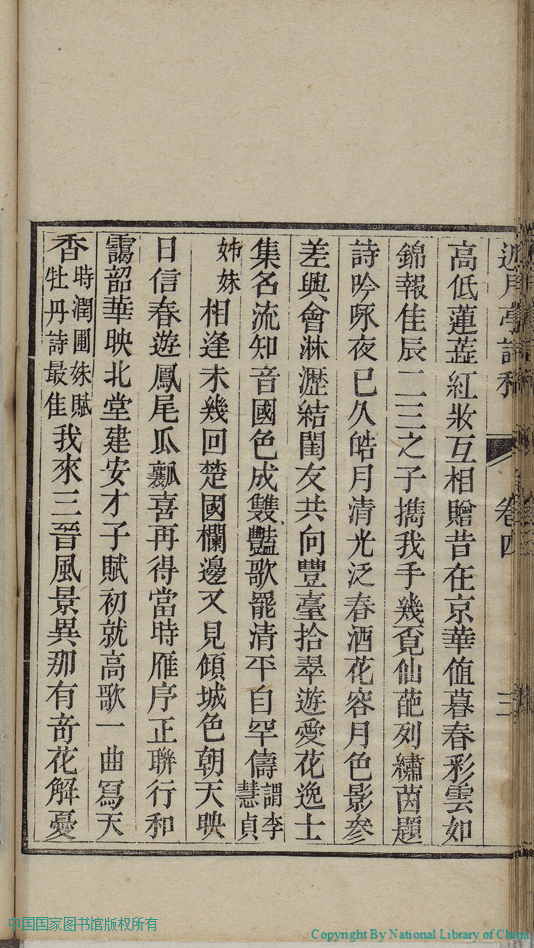 近月亭詩稿 卷四 三
高低蓮蕋紅妝互相贈昔在京華值暮春彩雲如
錦報佳辰二三之子攜我手幾覔仙葩列繡茵題
詩吟咏夜已久皓月清光泛春酒花容月色影參
差興會淋瀝結閨友共向豐臺拾翠遊愛花逸士
集名流知音國色成雙豔歌罷清平自罕儔謂李慧貞
姊妹相逢未幾回楚國欄邊又見傾城色朝天映
日信春遊鳳尾瓜瓤喜再得當時雁序正聯行和
靄韶華映北堂建安才子賦初就高歌一曲寫天
香時潤圃妹賦牡丹詩最佳我來三晉風景異那有奇花解憂
中国国家图书馆版权所有
Copyright By National Library of China